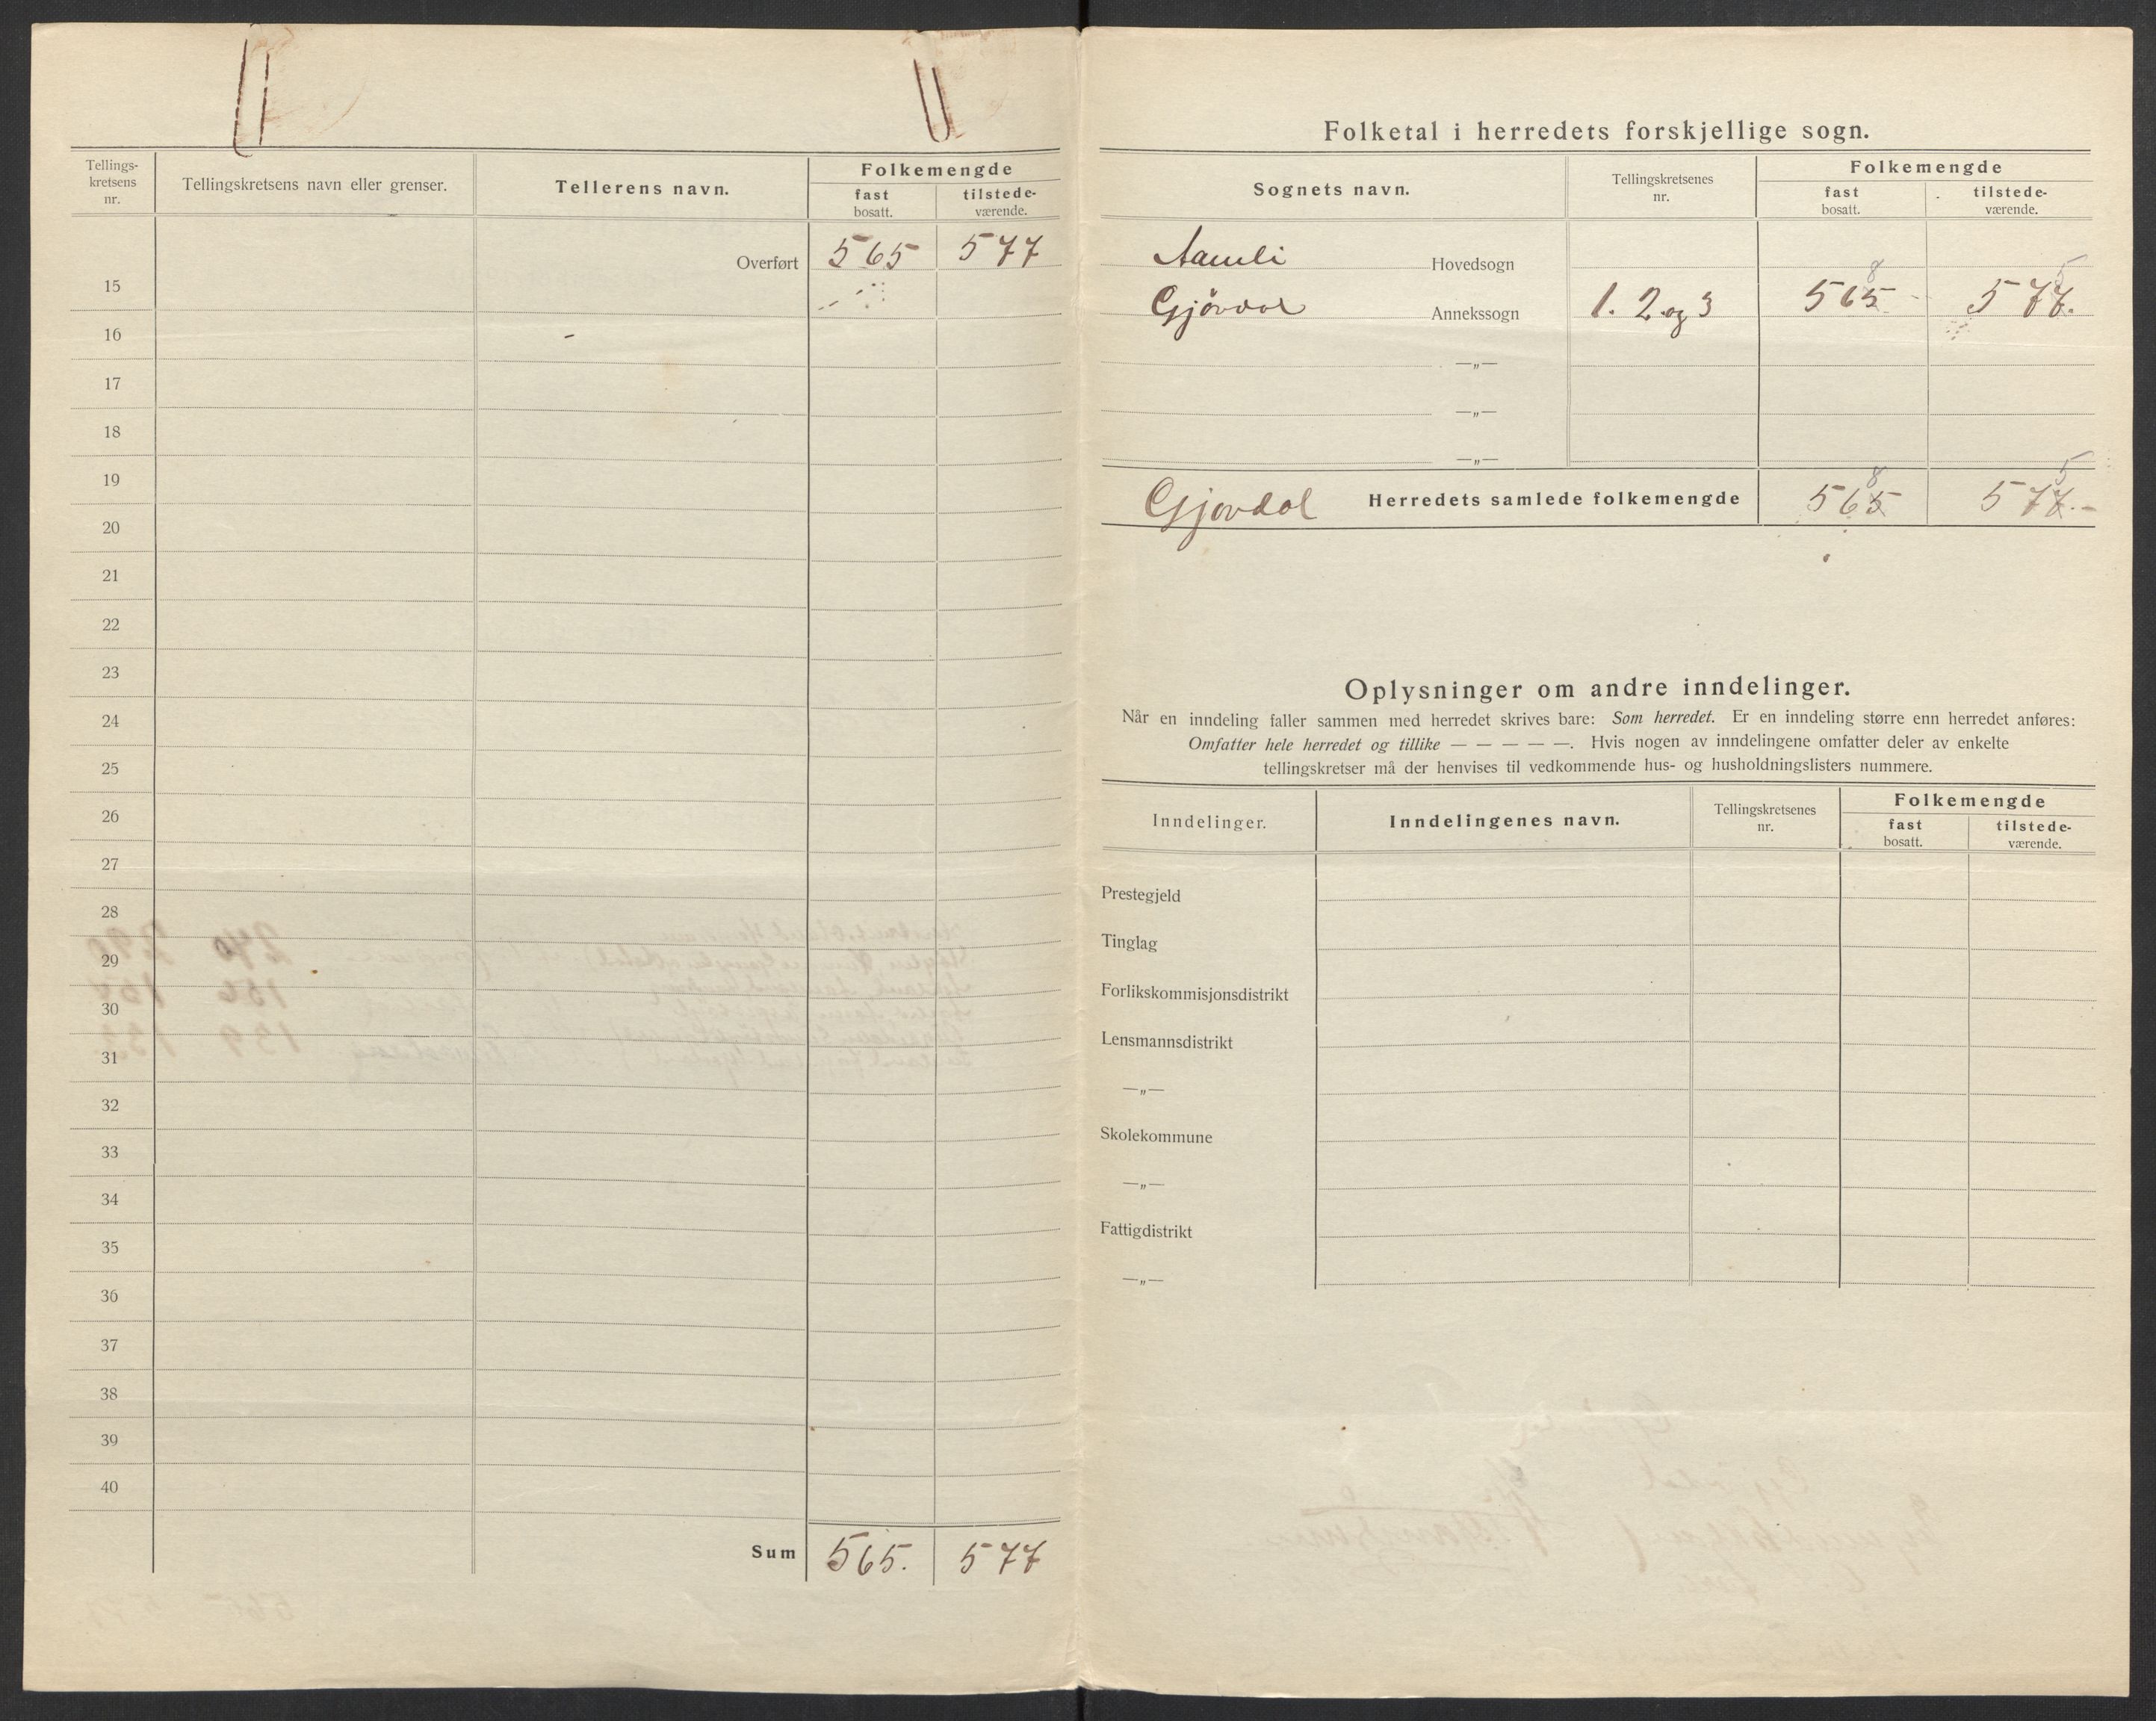 Tellings-
kretsens
nr.
Tellingskretsens navn eller grenser.
Tellerens navn.
Folkemengde
fast
bosatt.
tilstede-
værende.
Overført 565 577
15
16
17
18
19
20
21
22
23
24
25
26
27
28
29
30
31
32
33
34
35
36
37
38
39
40
Sum 565. 577
Folketal i herredets forskjellige sogn.
Sognets navn.
Tellingskretsenes
nr.
Folkemengde
fast
bosatt.
tilstede-
værende.
Aamli Hovedsogn
8 5
Gjövdal Annekssogn 1. 2 og 3 565 577.
—„—
—„—
—„—
8 5
Gjövdal Herredets samlede folkemengde 565 577.-
Oplysninger om andre inndelinger.
Når en inndeling faller sammen med herredet skrives bare: Som herredet. Er en inndeling større enn herredet anføres:
Omfatter hele herredet og tillike — — — — —. Hvis nogen av inndelingene omfatter deler av enkelte
tellingskretser må der henvises til vedkommende hus- og husholdningslisters nummere.
Inndelinger.
Inndelingenes navn.
Tellingskretsenes
nr.
Folkemengde
fast
bosatt.
tilstede-
værende.
Prestegjeld
Tinglag
Forlikskommisjonsdistrikt
Lensmannsdistrikt
—„—
Skolekommune
—„—
Fattigdistrikt
—„—